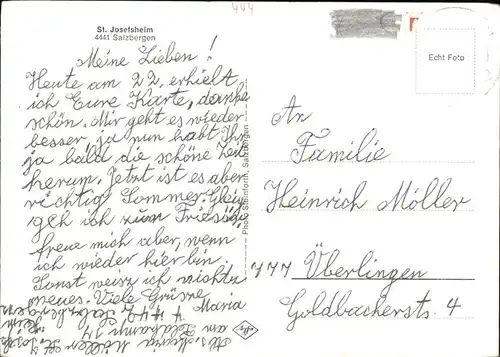 444
St. Josefsheim
4441 Salzbergen
Meine Lieben!
Heute am 22. erhielt
ich Eure Karte, danke
schön. Mir geht es wieder
besser, ja nun habt Ihr
ja bald die schöne Zeit
herum. Jetzt ist es aber
richtig Sommer. Gleich
geh ich zum
freue mich aber, wenn
ich wieder hier bin.
Sonst weisz ich nichts
neues. Viele Grüsse
Maria
Salzbergen
Maria Möller
Echt Foto
An
Familie
Heinrich Möller
777 Überlingen
Goldbacherstr. 4